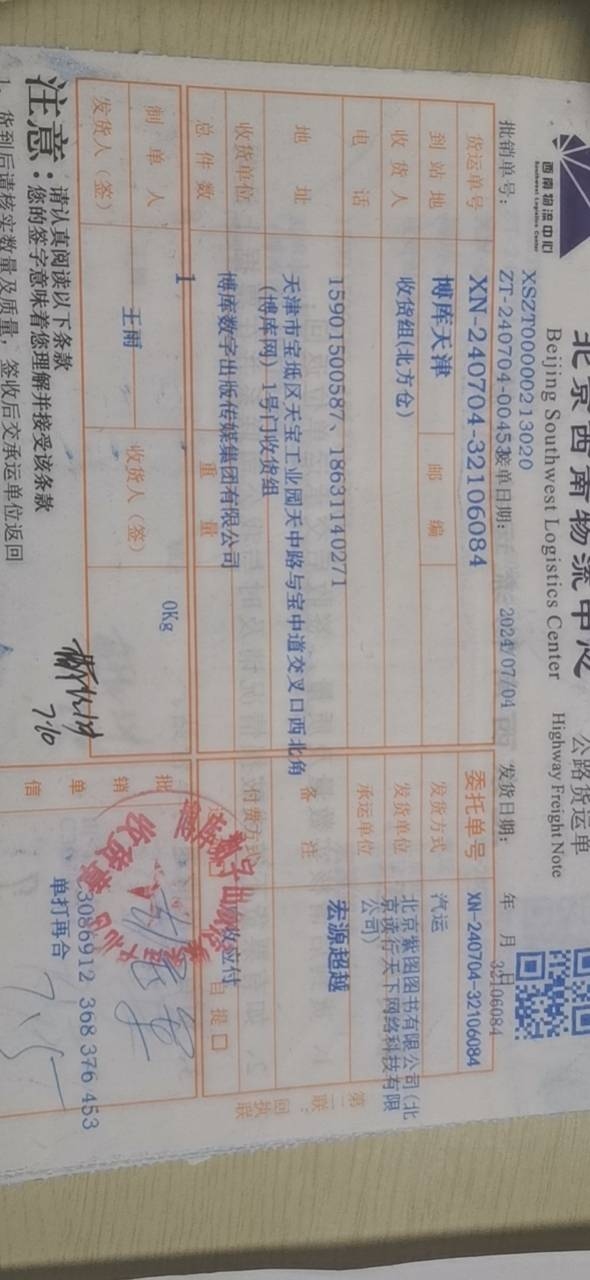 西南物流中心
Southwest Logistics Center
北京西南物流中心
Beijing Southwest Logistics Center
公路货运单
Highway Freight Note
批销单号:
XSZT00000213020
ZT-240704-00453
接单日期:
2024/07/04
发货日期:
年 月 日
32106084
货运单号
XN-240704-32106084
委托单号
XN-240704-32106084
到站地
博库天津
邮编
发货方式
汽运
收货人
收货组(北方仓)
发货单位
北京紫图图书有限公司(北
京读行天下网络科技有限
公司)
电话
15901500587、18631140271
承运单位
宏源超越
地址
天津市宝坻区天宝工业园天中路与宝中道交叉口西北角
(博库网)1号门收货组
备注
收货单位
博库数字出版传媒集团有限公司
付货方式
应付
总件数
1
重量
0Kg
自提口
制单人
王雨
收货人(签)
发货人(签)
7.10
批
销
单
信
3086912 368 376 453
单打再合
第二联:
回执联
注意:
请认真阅读以下条款
您的签字意味着您理解并接受该条款
1、货到后请核实数量及质量,签收后交承运单位返回